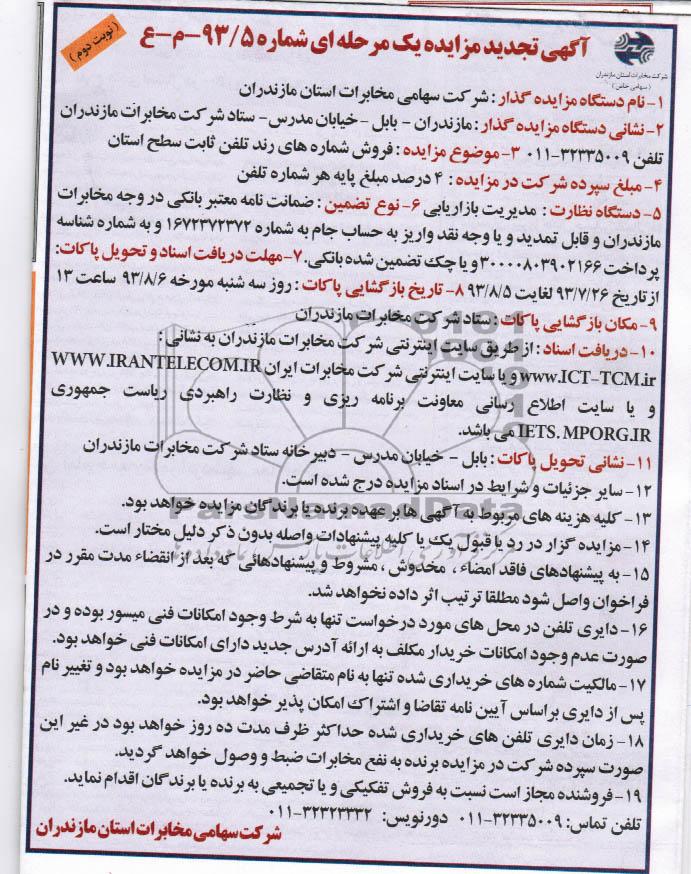 آگهی تجدید مزایده یک مرحله ای شماره ۹۳/۵-م-ع
(نوبت دوم)
شرکت مخابرات استان مازندران
(سهامی خاص)
۱- نام دستگاه مزایده گذار: شرکت سهامی مخابرات استان مازندران
۲- نشانی دستگاه مزایده گذار: مازندران - بابل - خیابان مدرس- ستاد شرکت مخابرات مازندران
تلفن ۳۲۳۳۵۰۰۹-۰۱۱ ۳- موضوع مزایده: فروش شماره های رند تلفن ثابت سطح استان
۴- مبلغ سپرده شرکت در مزایده: ۴ درصد مبلغ پایه هر شماره تلفن
۵- دستگاه نظارت: مدیریت بازاریابی ۶- نوع تضمین: ضمانت نامه معتبر بانکی در وجه مخابرات
مازندران و قابل تمدید و یا وجه نقد واریز به حساب جام به شماره ۱۶۷۲۳۷۲۳۷۲ و به شماره شناسه
پرداخت ۳۰۰۰۰۸۰۳۹۰۲۱۶۶ و یا چک تضمین شده بانکی. ۷- مهلت دریافت اسناد و تحویل پاکات:
از تاریخ ۹۳/۷/۲۶ لغایت ۹۳/۸/۵ ۸- تاریخ بازگشایی پاکات: روز سه شنبه مورخه ۹۳/۸/۶ ساعت ۱۳
۹- مکان بازگشایی پاکات: ستاد شرکت مخابرات مازندران
۱۰- دریافت اسناد: از طریق سایت اینترنتی شرکت مخابرات مازندران به نشانی:
www.ICT-TCM.ir و یا سایت اینترنتی شرکت مخابرات ایران WWW.IRANTELECOM.IR
و یا سایت اطلاع رسانی معاونت برنامه ریزی و نظارت راهبردی ریاست جمهوری
IETS.MPORG.IR می باشد.
۱۱- نشانی تحویل پاکات: بابل - خیابان مدرس - دبیرخانه ستاد شرکت مخابرات مازندران
۱۲- سایر جزئیات و شرایط در اسناد مزایده درج شده است.
۱۳- کلیه هزینه های مربوط به آگهی ها بر عهده برنده یا برندگان مزایده خواهد بود.
ParsNamadData
۱۴- مزایده گزار در رد یا قبول یک یا کلیه پیشنهادات واصله بدون ذکر دلیل مختار است.
۱۵- به پیشنهادهای فاقد امضاء، مخدوش، مشروط و پیشنهادهائی که بعد از انقضاء مدت مقرر در
فراخوان واصل شود مطلقا ترتیب اثر داده نخواهد شد.
۱۶- دایری تلفن در محل های مورد درخواست تنها به شرط وجود امکانات فنی میسور بوده و در
صورت عدم وجود امکانات خریدار مکلف به ارائه آدرس جدید دارای امکانات فنی خواهد بود.
۱۷- مالکیت شماره های خریداری شده تنها به نام متقاضی حاضر در مزایده خواهد بود و تغییر نام
پس از دایری براساس آیین نامه تقاضا و اشتراک امکان پذیر خواهد بود.
۱۸- زمان دایری تلفن های خریداری شده حداکثر ظرف مدت ده روز خواهد بود در غیر این
صورت سپرده شرکت در مزایده برنده به نفع مخابرات ضبط و وصول خواهد گردید.
۱۹- فروشنده مجاز است نسبت به فروش تفکیکی و یا تجمیعی به برنده یا برندگان اقدام نماید.
تلفن تماس: ۳۲۳۳۵۰۰۹-۰۱۱ دورنویس: ۳۲۳۲۳۳۳۲-۰۱۱
شرکت سهامی مخابرات استان مازندران